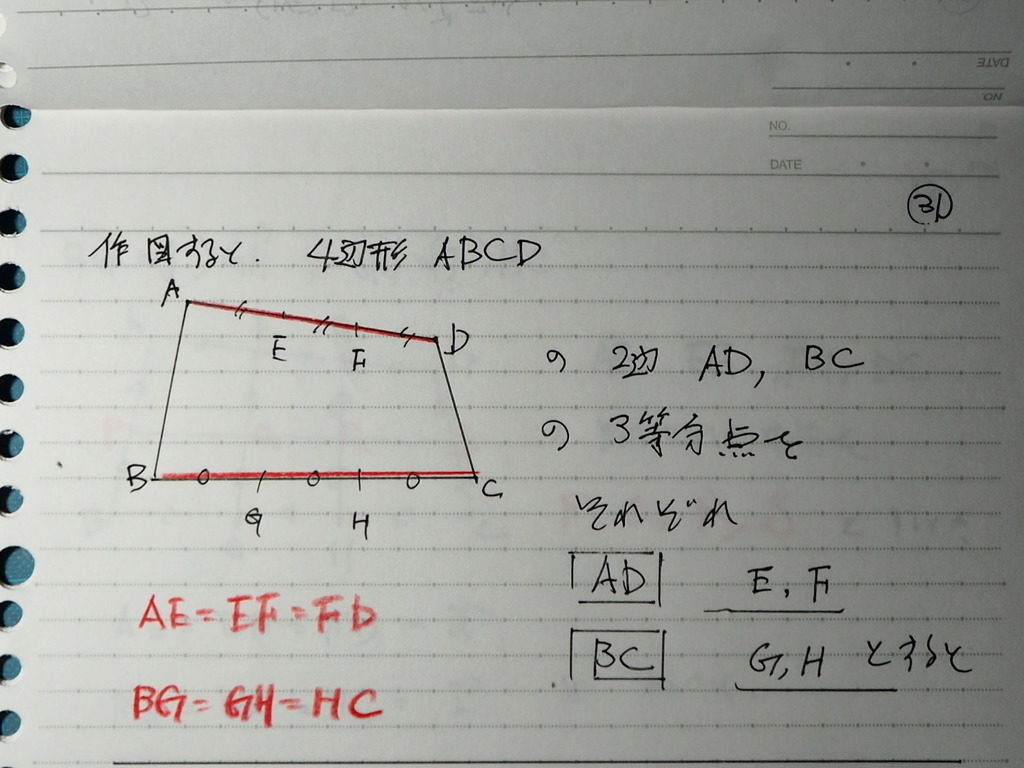 DATE
NO.
NO.
DATE
31
作図すると. 4辺形 ABCD
A
E
F
D
B
C
G
H
の 2辺 AD, BC
の 3等分点を
それぞれ
AD E, F
BC G, H とすると
AE = EF = FD
BG = GH = HC